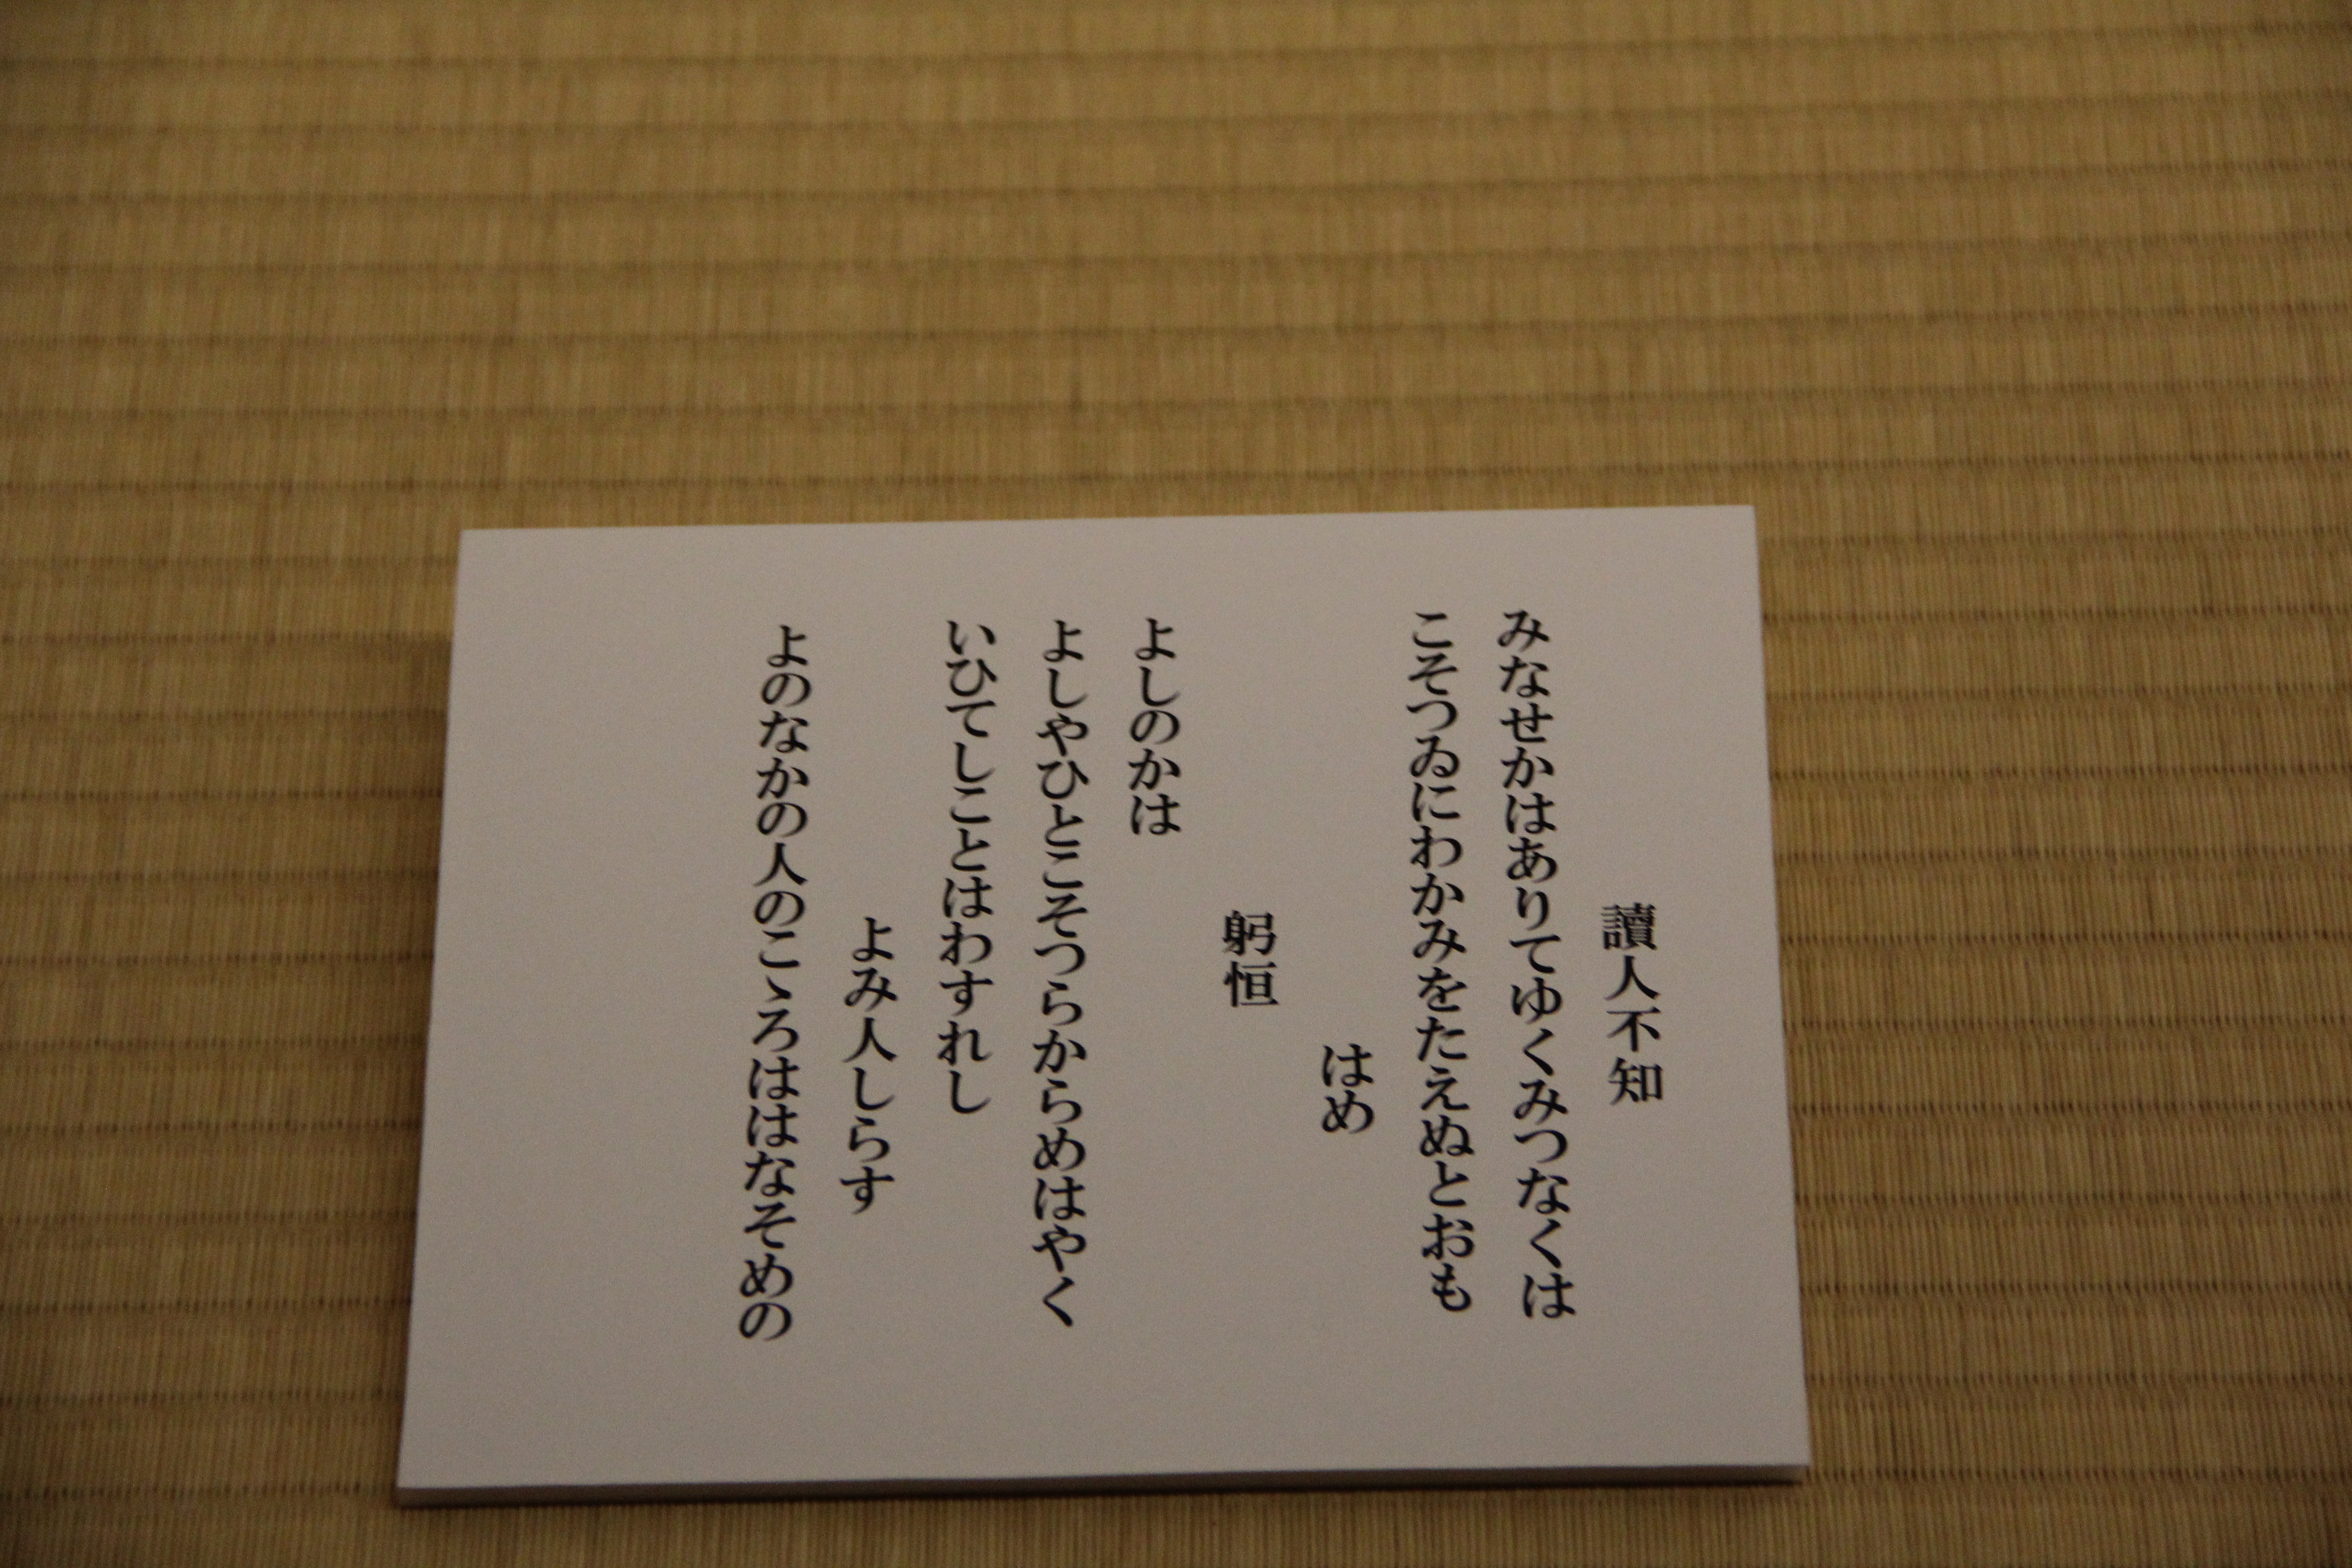 讀人不知
みなせかはありてゆくみつなくは
こそつゐにわかみをたえぬとおも
はめ
躬恒
よしのかは
よしやひとこそつらからめはやく
いひてしことはわすれし
よみ人しらす
よのなかの人のこゝろははなそめの